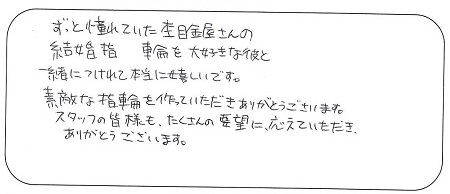 ずっと憧れていた杢目金屋さんの
結婚指 輪を大好きな彼と
一緒につけれて本当に嬉しいです。
素敵な指輪を作っていただきありがとうございます。
スタッフの皆様も、たくさんの要望に、応えていただき、
ありがとうございます。